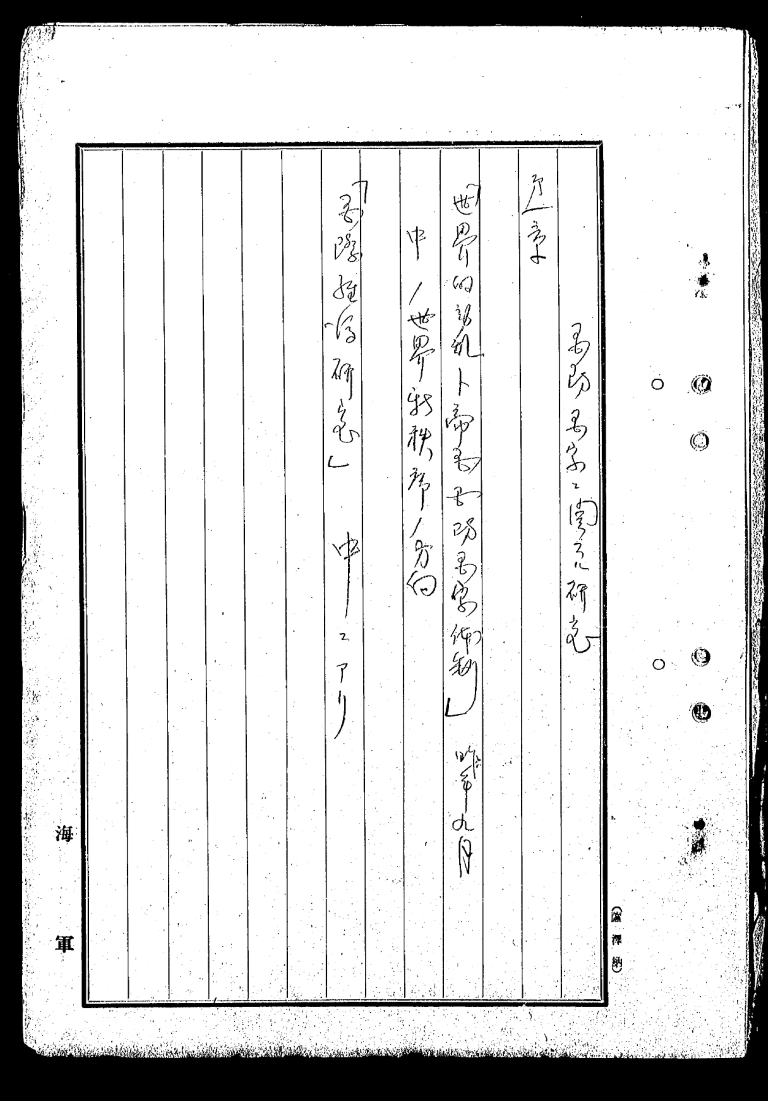 国防国家ニ関スル研究
序章
「世界的動乱ト帝国国防国家体制」 昨年九月
中ノ世界新秩序ノ方向
「国際経済研究」 中ニアリ
海軍